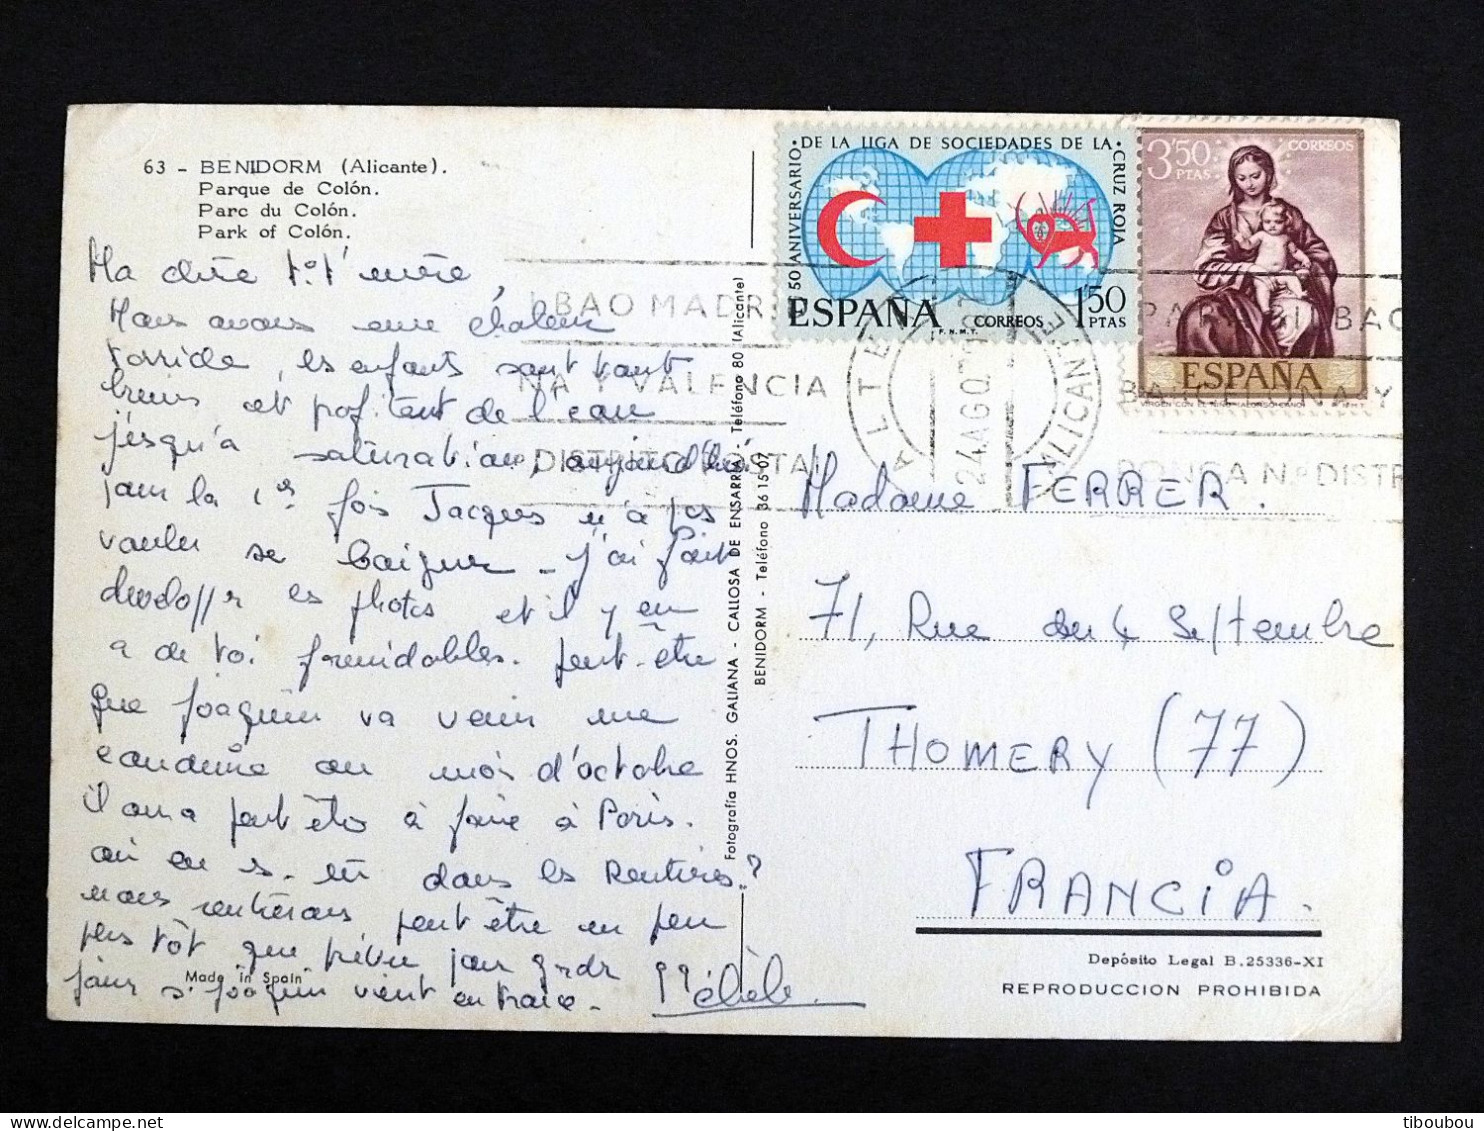 63 - BENIDORM (Alicante).
Parque de Colón.
Parc du Colón.
Park of Colón.
Ma chère
Nous avons une chaleur
torride, les enfants sont tout
bruns et profitent de l'eau
jusqu'à saturation, aujourd'hui
pour la 1ère fois Jacques n'a pas
voulu se baigner - j'ai fait
developper les photos et il y en
a de toi formidables. peut-être
que Joaquin va venir une
au mois d'octobre
il aura peut être à faire à Paris.
où en es-tu dans les
nous rentrerons peut être un peu
plus tôt que prévu pour
si Joaquin vient en France.
Michèle
Made in Spain
Fotografía HNOS. GALIANA - CALLOSA DE ENSARRIA - Teléfono 80 (Alicante)
BENIDORM - Teléfono 36 15 07
50 ANIVERSARIO · DE LA LIGA DE SOCIEDADES DE LA · CRUZ ROJA
ESPAÑA CORREOS 1'50 PTAS
F.N.M.T.
3'50 PTAS CORREOS
ESPAÑA
BAO MADR
NA Y VALENCIA
DISTRITO POSTAL
ALTEA
24 AGO.
ALICANTE
PARA BILBAO
BARCELONA Y
PONGA N.º DISTR
Madame FERRER.
71, Rue du 4 Septembre
THOMERY (77)
FRANCIA.
Depósito Legal B. 25336-XI
REPRODUCCION PROHIBIDA
tiboubou